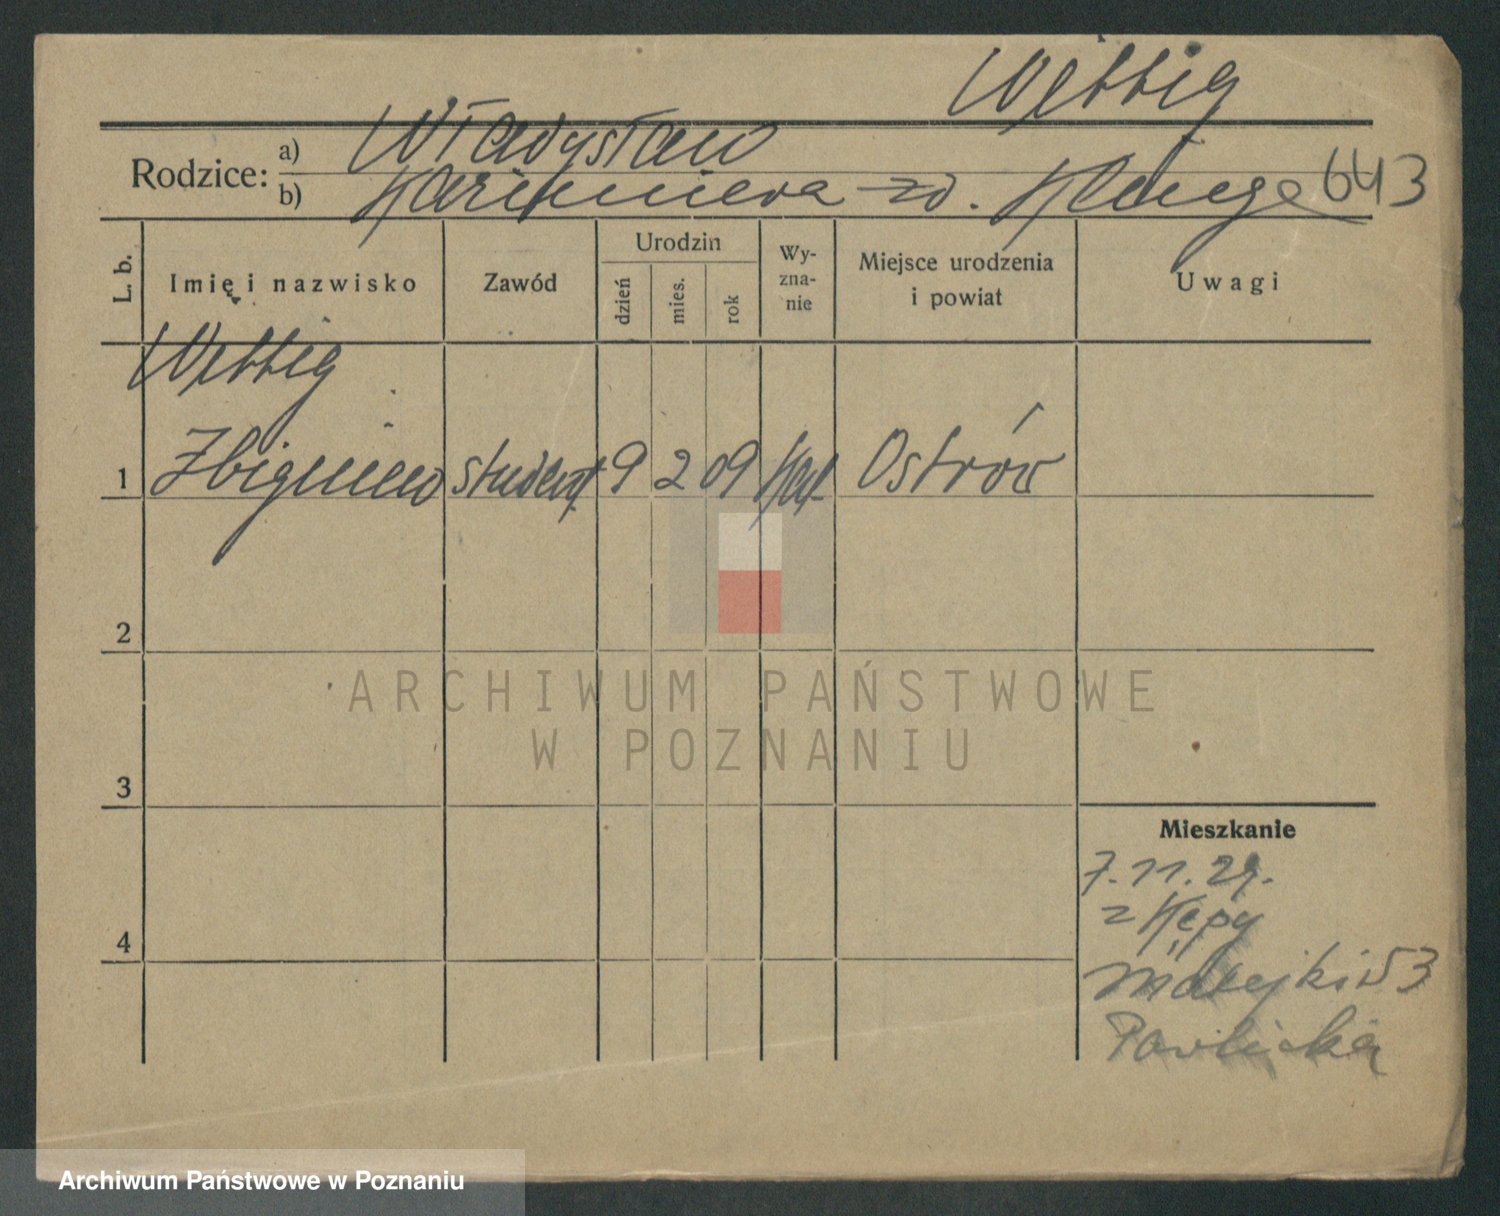 Wettig
Rodzice: a) Władysław
b) Kazimiera zd. Kluge 643
L. b. Imię i nazwisko Zawód Urodzin dzień mies. rok Wy-zna-nie Miejsce urodzenia i powiat Uwagi
Wettig
1 Zbigniew student 9 2 09 kat Ostrów
2
3
4
Mieszkanie
7.11.29.
z Kępy
Matejki 53
Pawlicka
ARCHIWUM PAŃSTWOWE
W POZNANIU
Archiwum Państwowe w Poznaniu